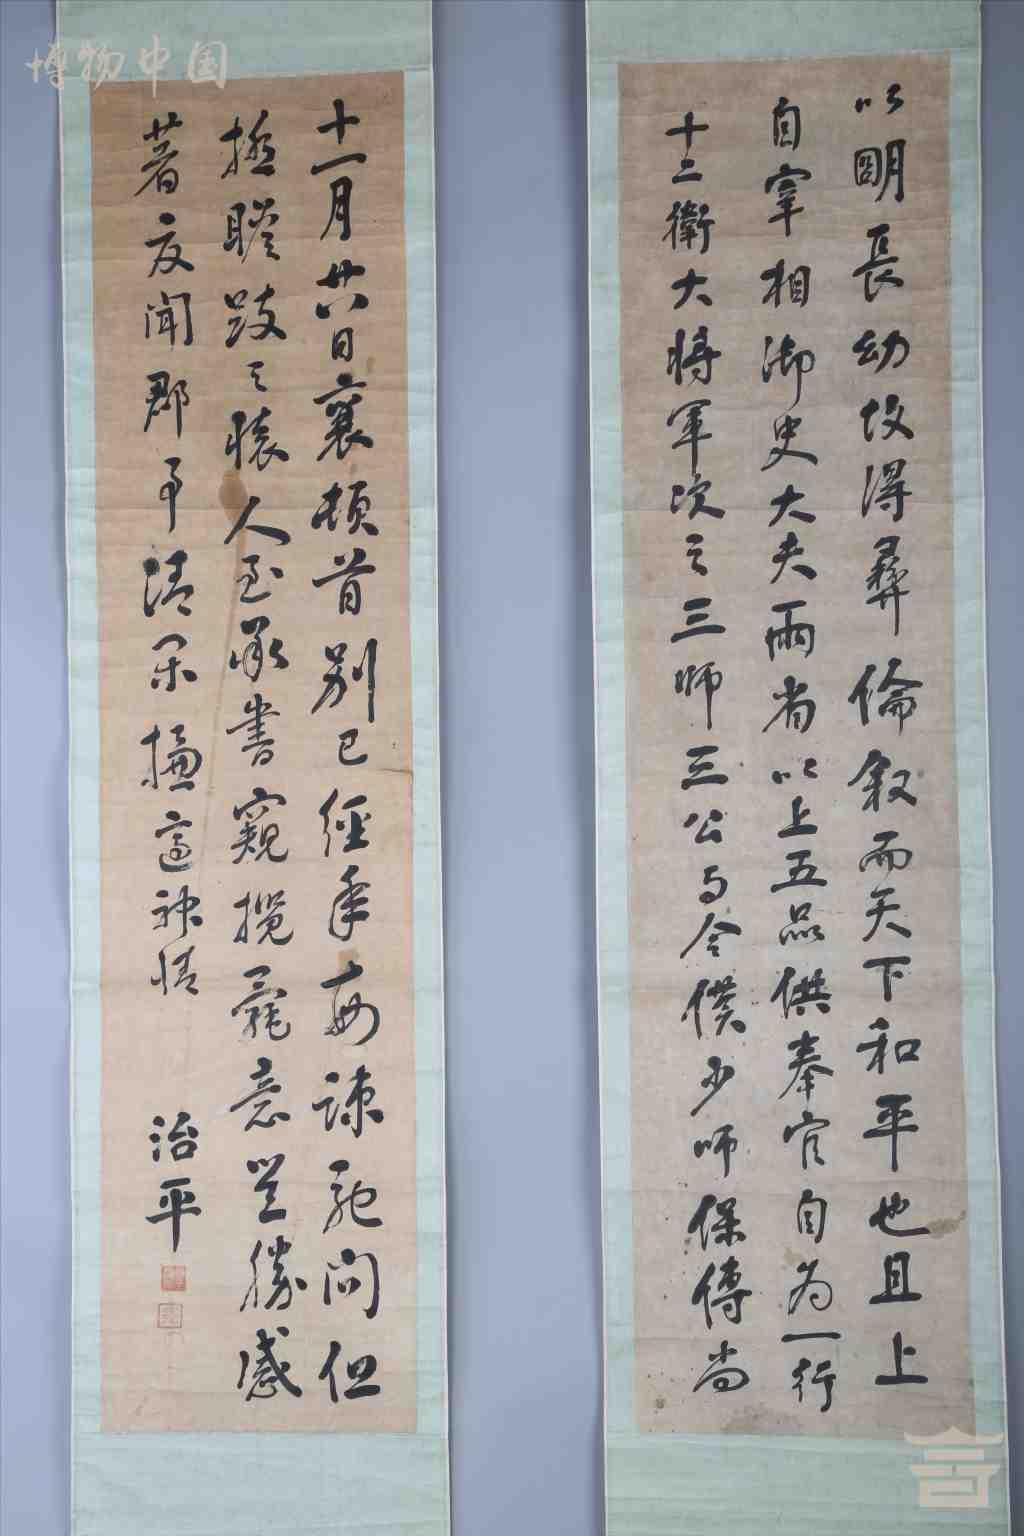 博物中国
以明長幼故得彞倫叙而天下和平也且上
自宰相御史大夫兩省以上五品供奉官自为一行
十二衛大將軍次之三師三公与令僕少师保傅尚
十一月廿八日襄頓首别已經年每踈馳问但
極瞻跂之懷人至承書窺攬意豈勝感
著友聞郡事清閑適神情
治平